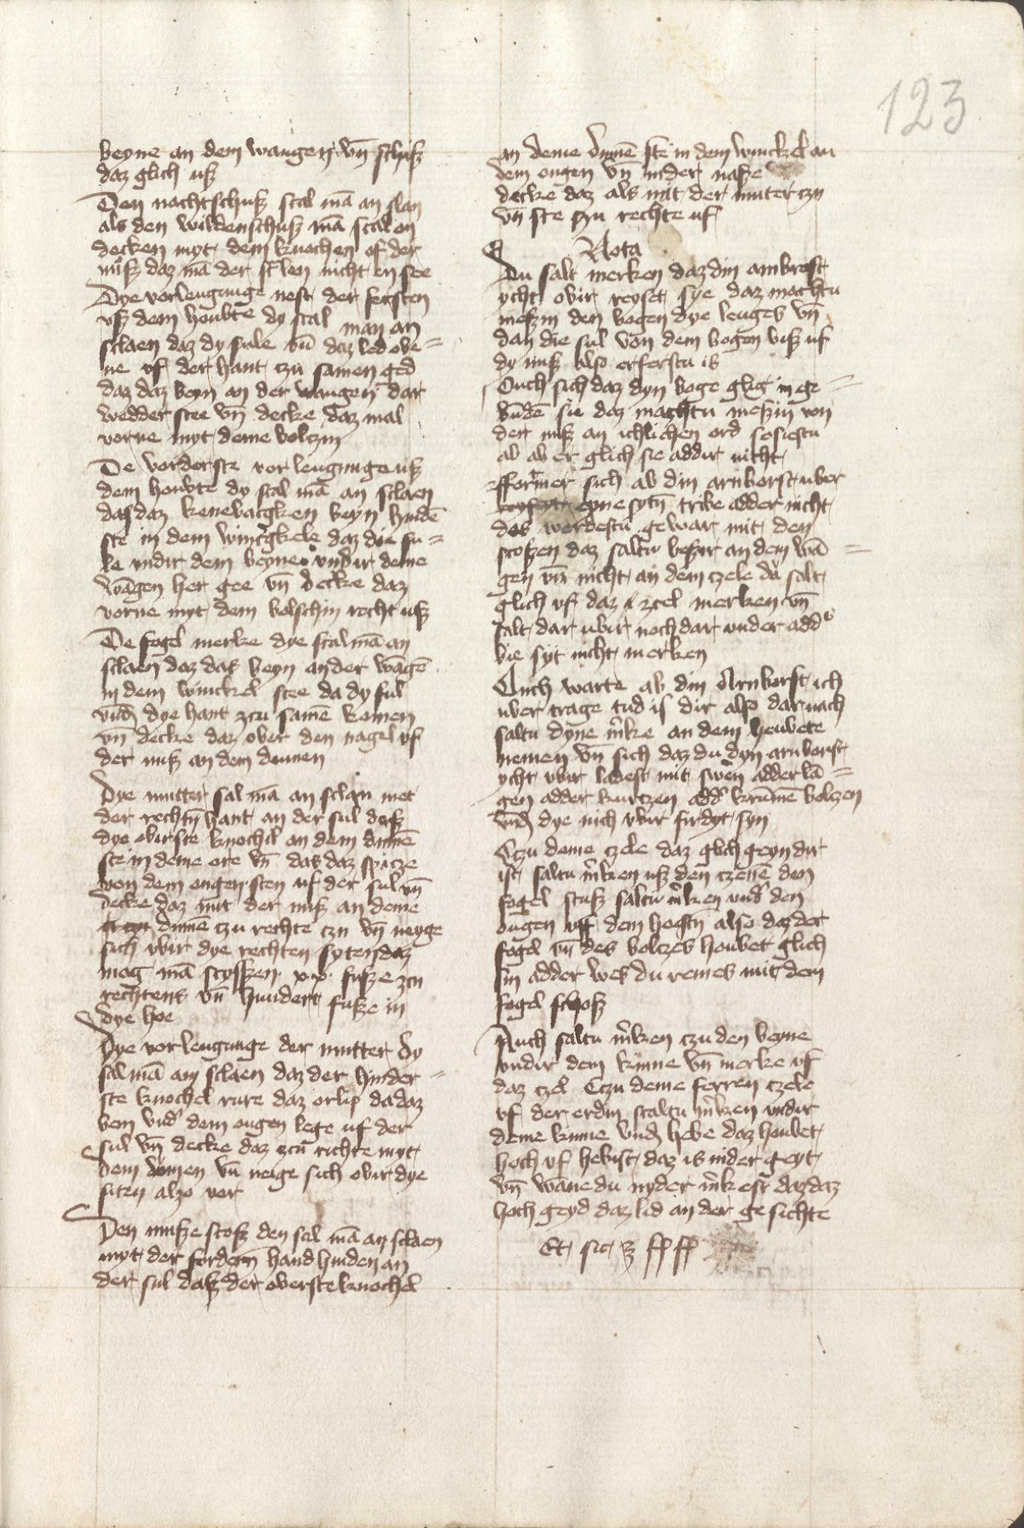 123
beyne an dem wangen vn̄ schuß
daz glich uß
Den nachtschuß scal mā an slan
als den wildenschuß mā scal en
decken myt dem knochen of der
nuß daz mā der sclen nicht en see
Dye vorlengunge nest der secsten
uß dem houbte dy scal man an
sclaen daz dy sule vn̄ daz led obe=
ne uf der hant czu samen ged
daz daz beyn an der wangen dar
wedder stee vn̄ decke daz mal
vorne myt deme boltzin
De vorderste vorlengunge uß
dem houbte dy scal mā an sclaen
das daz kenebacken beyn hindē
ste in dem winckele daz die su=
le vndir dem beyne vndir deme
wāgen her gee vn̄ decke daz
vorne myt dem bolschin recht uß
De fogel merke dye scal mā an
sclaen daz das beyn an der wāge
in dem winckel stee da dy sul
vnd dye hant zcu samē komen
vn̄ decke daz ober den nagel uf
der nuß an dem dumen
Dye mutter sal mā an sclan met
der rechtn̄ hant an der sul daß
dye obirste knochil an dem dumē
ste in deme ore vn̄ das daz spicze
von dem ougen sten uf der sul vn̄
decke daz mit der nuß an deme
dumē czu rechte czu vn̄ neyge
sich vbir dye rechten syten daz
mag mā scyssen xx fusze zcu
rechtens vn̄ hundert fusze in
dye hoe
Dye vorlengunge der mutter dy
sal mā any sclaen daz der hinder=
ste knochel rure daz orlip da daz
ben vnd dem ougen lege uf der
sul vn̄ decke daz zcu richte myt
dem dumen vn̄ neige sich obir dye
siten alzo vor
Den nusze stosz den sal mā an sclaen
myt der fordern hand hinden an
der sul dasz der overste knochel
an deme dumē ste in dem winckel an
dem ougen vn̄ nider nasze
decke daz als mit der muter czu
vn̄ ste czu rechte uf
Nota
Du salt merken daz din ambrost
ycht obir reyset sye daz machtu
meszin den bogen dye lenges vn̄
dan die sul von dem bogen bisz uf
dy nusz also erferstu is
Ouch sich daz dyn boge glich in ge=
bundē sie daz machtu meszin von
der nusz an ichlichen ord so siestu
ab ab er glich sie addir nicht
fformer sich ab din arnborst uber
eyne sytn̄ tribe adder nicht
des werdestu gewar mit den
scoszen daz saltu beszir an dem wā=
gen vn̄ nicht an dem czele du salt
glich uf daz zcel merken vn̄
salt dar ubir noch dar under add'
bie syt nicht merken
Ouch warte ab din Arnborst ich
uber trage tud is dir also dar nach
saltu dyne m̄ke an dem heubete
nemen vn̄ sich daz du dyn arnborst
ycht vbir ladest mit swēn adder lā=
gen adder kurtzen add' krumē bolczen
vnd dye nich vbir firdyt syn
Czu deme czele daz glich geyn dir
ist saltu m̄ken uß den czenē den
fogel stusz saltu m̄ken vnd' den
ougen uff dem hogstn̄ also daz der
fogel vn̄ des bolczes houbet glich
sin adder wes du remes mit dem
fogel schosz
Auch saltu m̄ken czu den beyne
vndir dem kinne vn̄ merke uf
daz czel Czu deme ferren czele
uf der erdin scaltu m̄ken vndir
deme kinne vnd hebe daz houbet
hoch uf hebist daz is nider geyt
vn̄ wane du nyder m̄kest daz daz
hoch geyd daz lid an der gesichte
Et sic